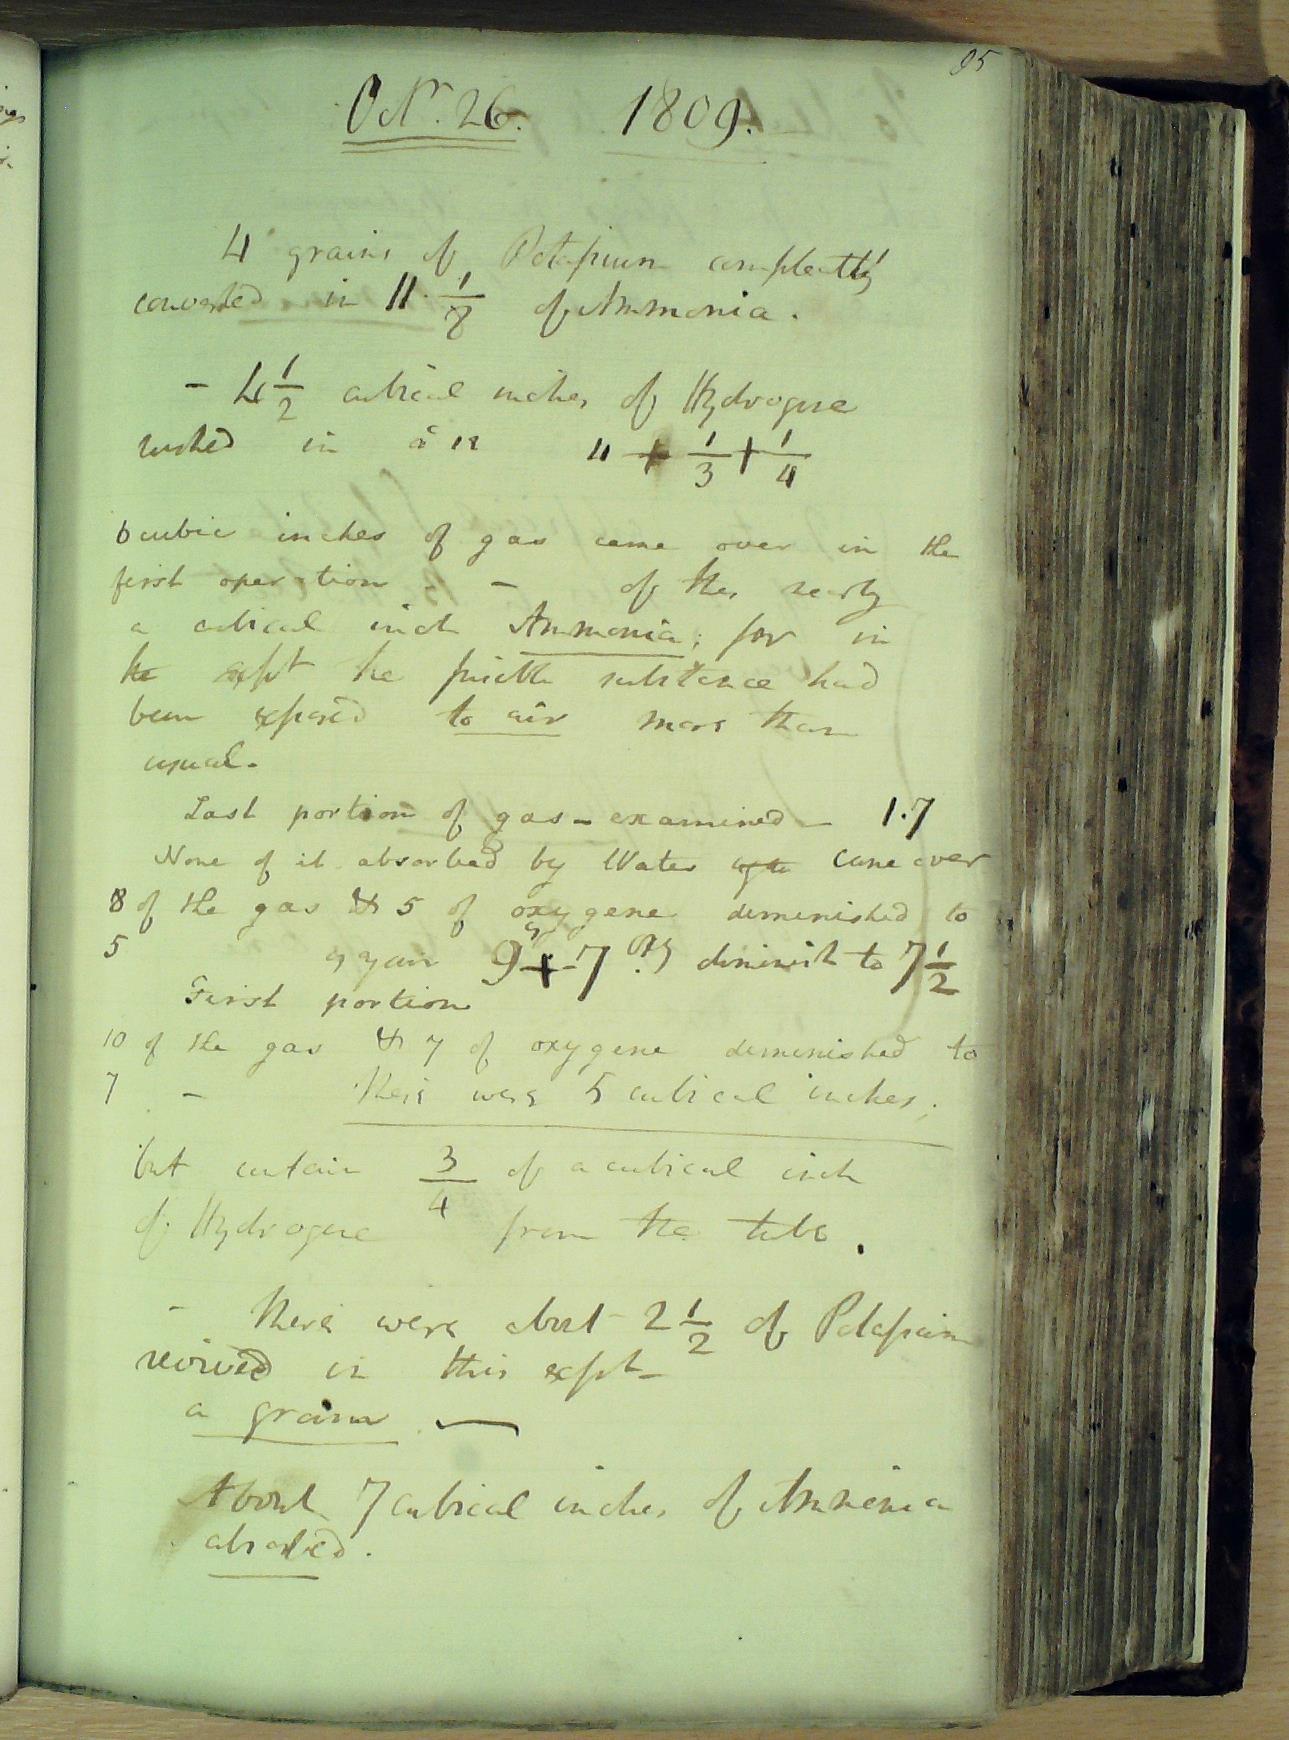 95
Octr. 26. 1809.
4 grains of Potassium compleatly
converted in 11. 1/8 of Ammonia.
- 4 1/2 cubical inches of Hydrogene
rushed in 11 + 1/3 + 1/4
6 cubic inches of gas came over in the
first operation - of this nearly
a cubical inch Ammonia; for in
the expt the fusible substance had
been exposed to air more than
usual.
Last portion of gas - examined - 1.7
None of it absorbed by Water came over
8 of the gas & 5 of oxygene diminished to
5 again 9 + 7 oxy diminish to 7 1/2
First portion
10 of the gas & 7 of oxygene diminished to
7 - there were 5 cubical inches;
but certain 3/4 of a cubical inch
of Hydrogene from the tube.
- there were about 2 1/2 of Potassium
revived in this expt -
a grain —
About 7 cubical inches of Ammonia
absorbed.